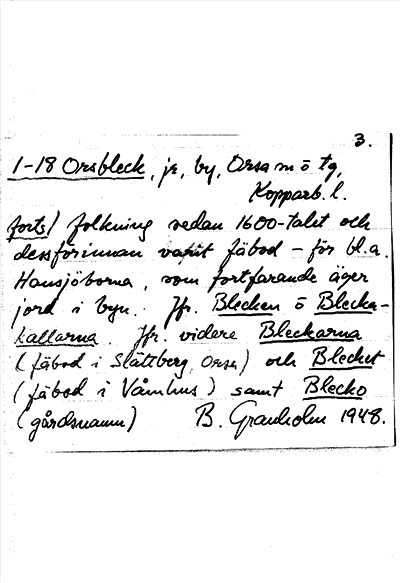 3.
1-18 Orsbleck, je, by, Orsa m ö tg,
Kopparb. l.
forts) folkning sedan 1600-talet och
dessförinnan varit fäbod – för bl.a.
Hansjöborna, som fortfarande äger
jord i byn. Jfr. Blecken ö Blecka-
kallarna. Jfr. vidare Bleckarna
(fäbod i Slättberg, Orsa) och Blecket
(fäbod i Våmhus) samt Blecko
(gårdsnamn) B. Granholm 1948.